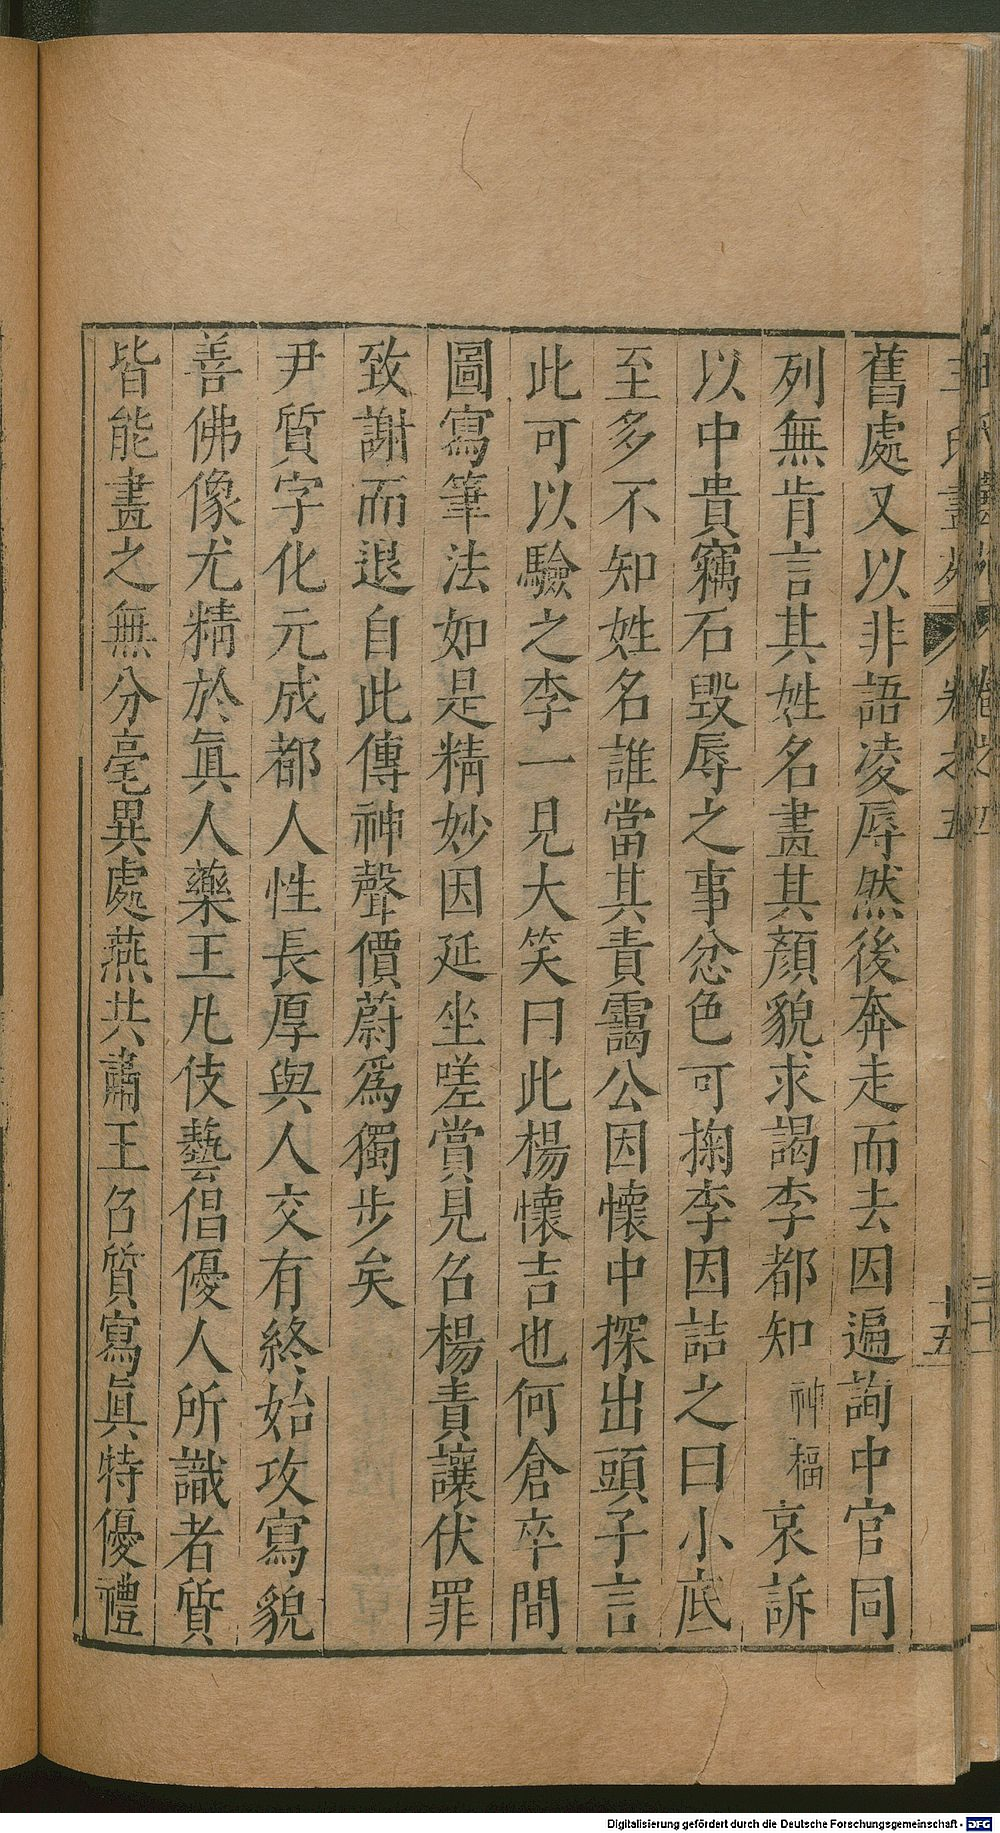 舊處又以非語凌辱然後奔走而去因遍詢中官同
列無肯言其姓名畫其顏貌求謁李都知神福哀訴
以中貴竊石毀辱之事忿色可掬李因詰之曰小底
至多不知姓名誰當其責靄公因懷中探出頭子言
此可以驗之李一見大笑曰此楊懷吉也何倉卒間
圖寫筆法如是精妙因延坐嗟賞見召楊責讓伏罪
致謝而退自此傳神聲價蔚爲獨步矣
尹質字化元成都人性長厚與人交有終始攻寫貌
善佛像尤精於眞人藥王凡伎藝倡優人所識者質
皆能畫之無分毫異處燕共肅王召質寫眞特優禮
王氏畫苑 卷之五 十五
Digitalisierung gefördert durch die Deutsche Forschungsgemeinschaft - DFG